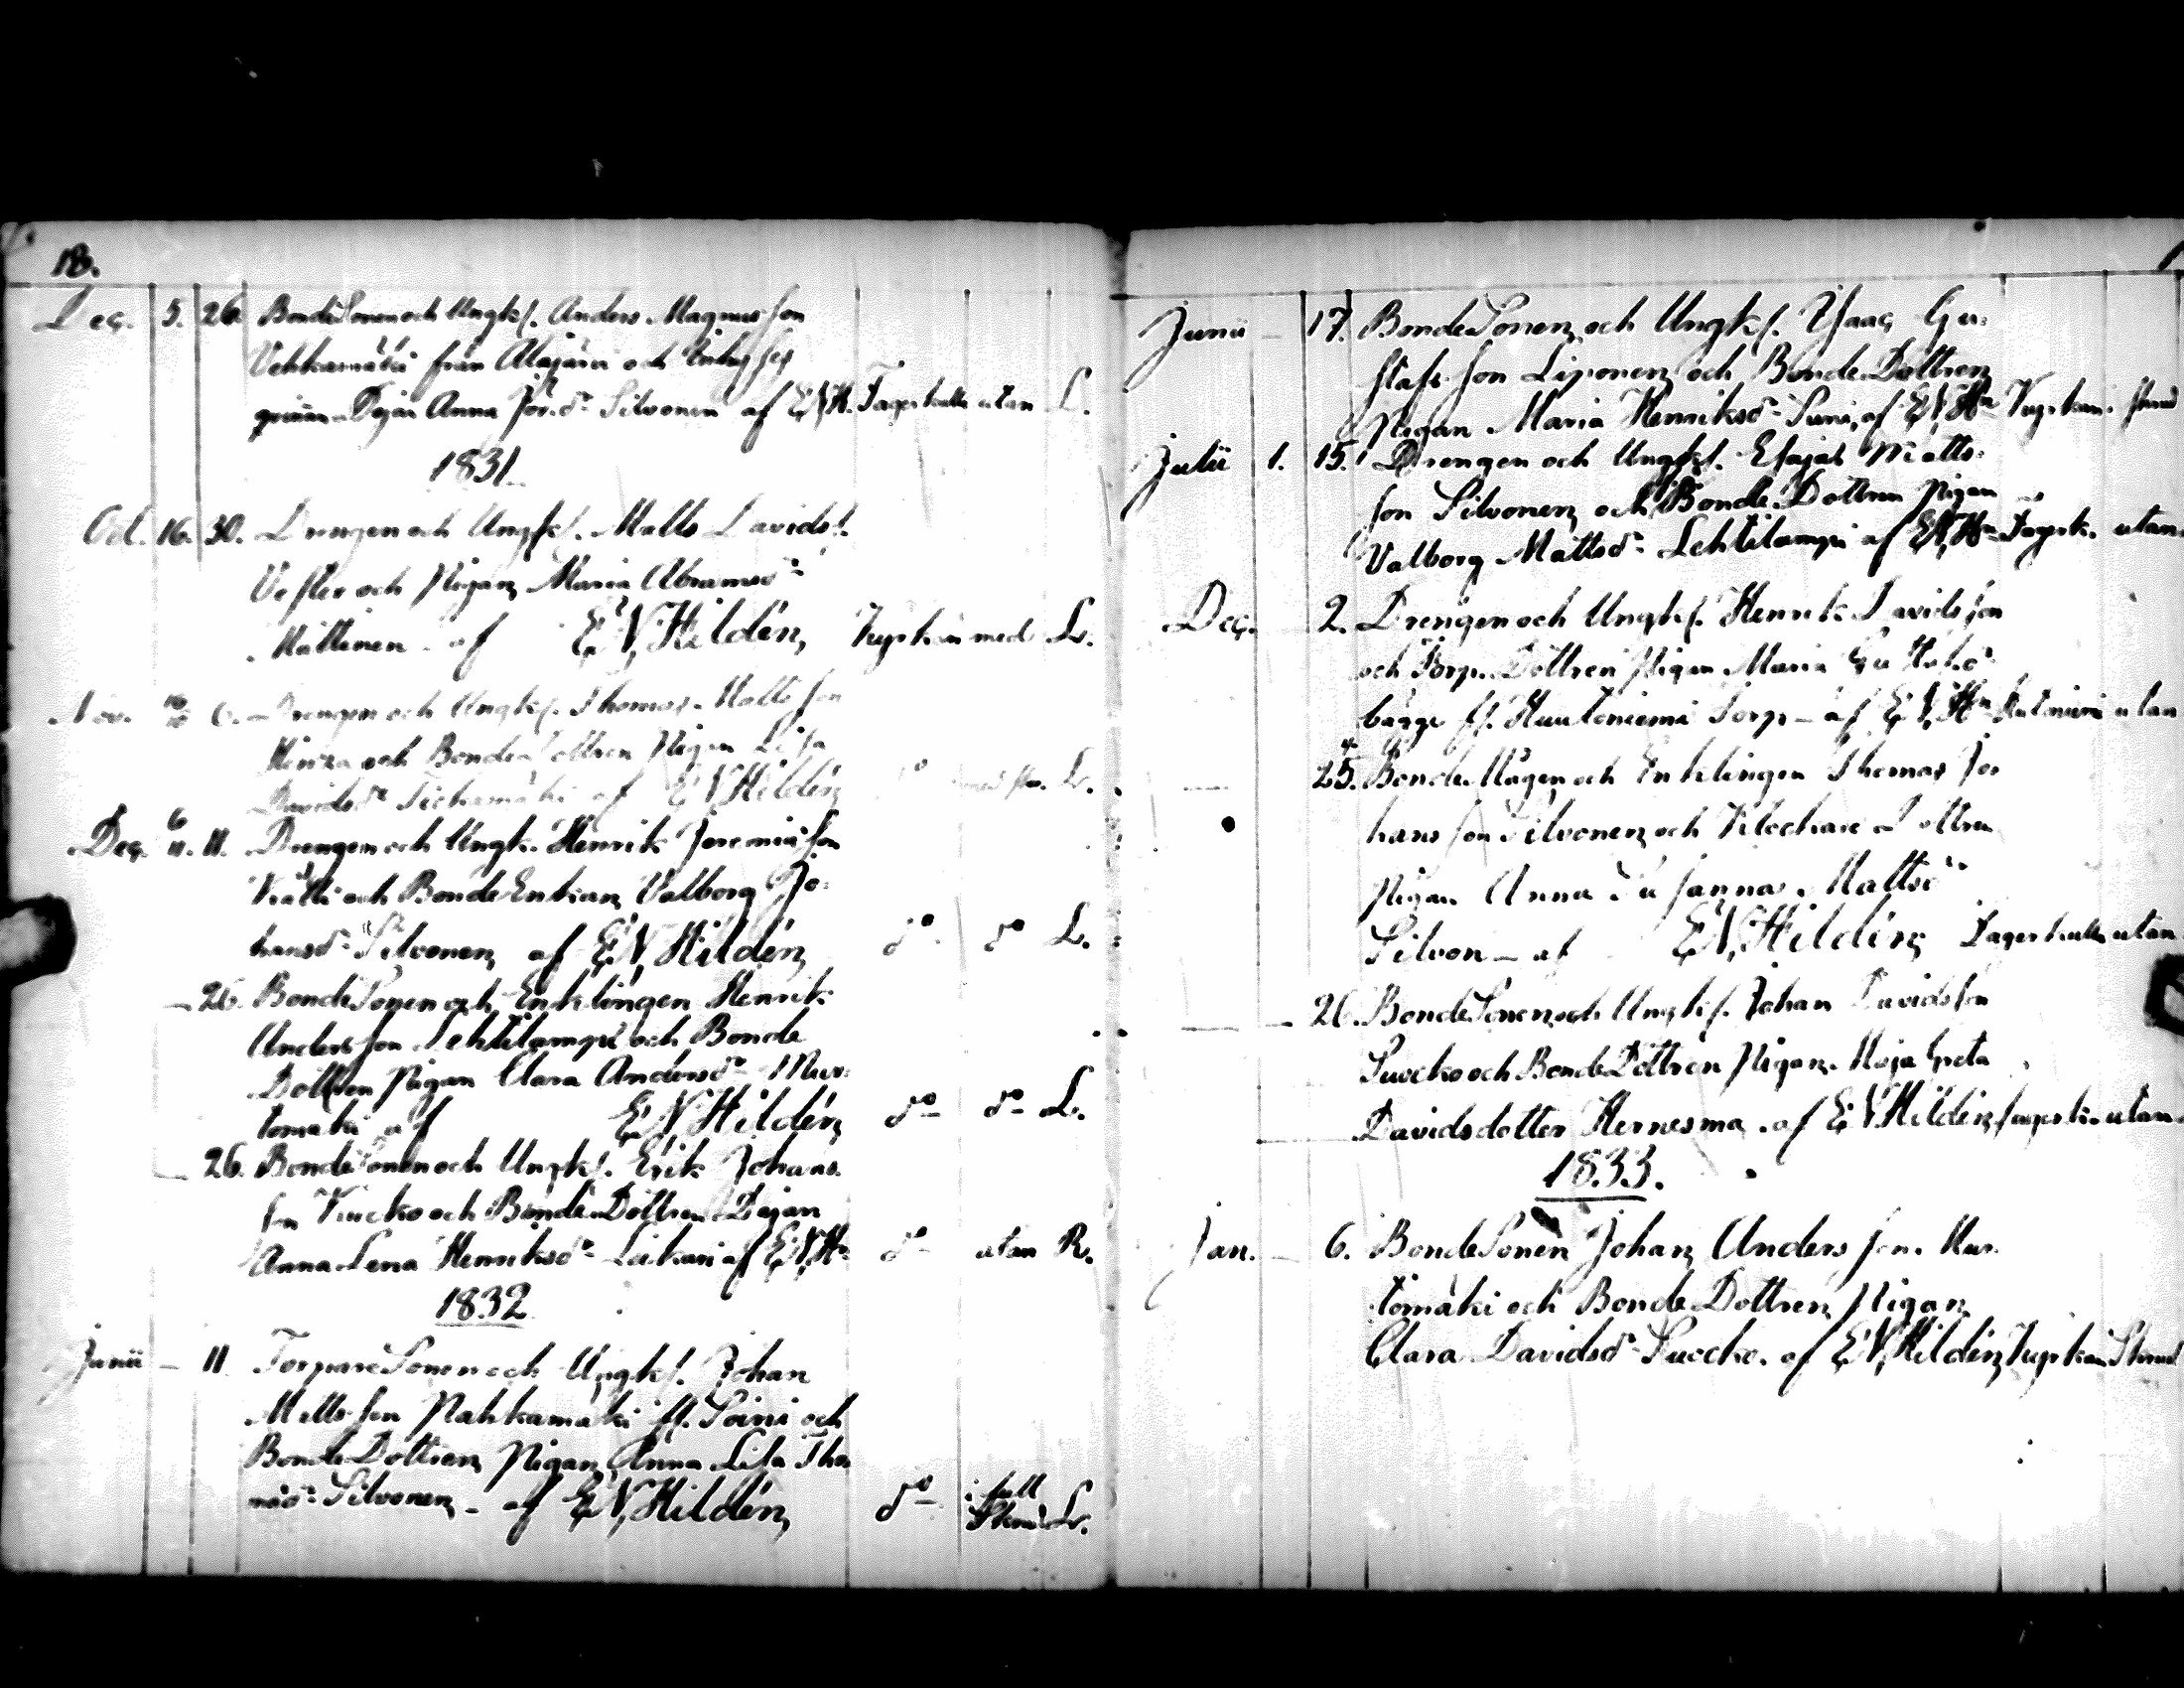 18.
Dec. 5. 26. BondeSonen och Ungk. Anders Magnus son
Vehkamäki från Alajärvi och
Pigan Anna Jos.dr Silvonen af E.N.H. Fagerkulla utan L.
1831.
Oct. 16. 30. Drengen och Ungk. Matts Davids.
och Pigan Maria Abramsdr
Mattinen af E.N. Hildén, med L.
Nov. 6. Drengen och Ungk. Thomas Matts son
och Bonde Dottren Pigan Lisa
Davidsdr af E.N. Hildén do L.
Dec. 6 11. 11. Drengen och Ungk. Henrik Jeremiæ son
Kätti och BondeEnkan Valborg Jo-
hansdr Silvonen af E.N. Hildén do do L.
— 26. BondeSonen och Enklingen Henrik
Anders son Lehtilampi och Bonde
Dottren Pigan Clara Andersdr Mur-
tomäki af E.N. Hildén do do L.
— 26. BondeSonen och Ungk. Erik Johans
son Kucko och Bonde Dottren Pigan
Anna Lena Henriksdr Leikari af E.N.Hn do utan R.
1832
Junii — 11. TorpareSonen och Ungk. Johan
Matts son Nahkamäki fr. Soini och
BondeDottren Pigan Anna Lisa Tho-
mædr Silvonen af E.N. Hildén do i full Skrud L.
Junii — 17. BondeSonen och Ungk. Isaac Gu-
stafs son Liponen och Bonde Dottren
Pigan Maria Henriksdr Suni, af E.N.Hn
Julii 1. 15. Drengen och Ungk. Esajas Matts-
son Silvonen och Bonde Dottren Pigan
Valborg Mattsdr Lehtilampi af E.N.Hn Fagerk. utan
Dec. 2. Drengen och Ungk. Henrik Davids son
och Torp. Dottren Pigan Maria
bägge fr. Huutoniemi Torp af E.N.Hn utan
— 25. Bonde Mågen och Enklingen Thomas Jo-
hans son Silvonen och Klockare Dottren
Pigan Anna Susanna Mattsdr
Silvon af E.N. Hildén Fagerkulla utan
— 26. BondeSonen och Ungk. Johan Davids son
Suocko och BondeDottren Pigan Maja Greta
Davidsdotter Hernesma af E.N. Hildén, Fagerk. utan
1833.
Jan. — 6. BondeSonen Johan Anders son Mur-
tomäki och Bonde Dottren Pigan
Clara Davidsdr Suocko af E.N. Hildén,